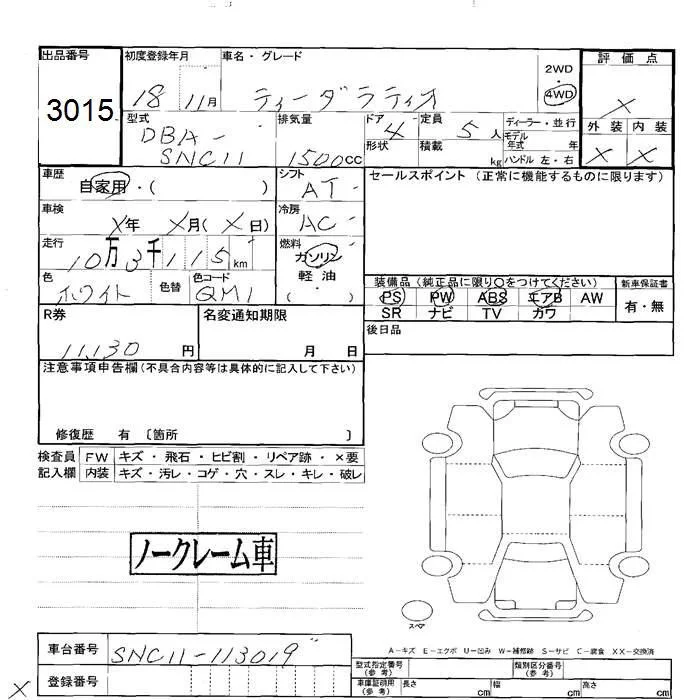 出品番号
3015
初度登録年月
18 11月
車名・グレード
ティーダラティオ
2WD
4WD
評価点
X
外装 内装
X X
型式
DBA-
SNC11
排気量
1500cc
ドア 4
形状
定員 5人
積載 kg
ディーラー・並行
モデル
年式 年
ハンドル 左・右
車歴
自家用・( )
シフト
AT
セールスポイント (正常に機能するものに限ります)
車検
X年 X月(X日)
冷房
AC
走行
10万3千115km
燃料
ガソリン
軽油
( )
色
ホワイト
色替
色コード
QM1
装備品(純正品に限り○をつけてください)
新車保証書
PS PW ABS エアB AW
SR ナビ TV カワ
有・無
R券
11,130円
名変通知期限
月 日
後日品
注意事項申告欄(不具合内容等は具体的に記入して下さい)
修復歴 有 〔箇所 〕
検査員 FW キズ・飛石・ヒビ割・リペア跡・×要
記入欄 内装 キズ・汚レ・コゲ・穴・スレ・キレ・破レ
ノークレーム車
スペア
A-キズ E-エクボ U-凹み W-補修跡 S-サビ C-腐食 XX-交換済
車台番号
SNC11-113019
登録番号
X
型式指定番号
(参考)
類別区分番号
(参考)
車庫証明用
(参考)
長さ cm 幅 cm 高さ cm